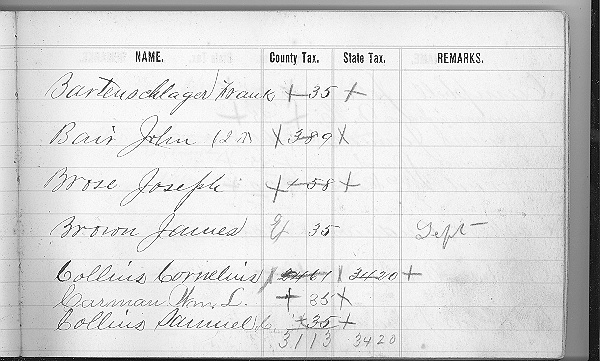 NAME. County Tax. State Tax. REMARKS.
Bartenschlager Frank + 35 +
Bair John (2d) X 389 X
Brose Joseph + 158 +
Brown James 35 Left
Collins Cornelius 3420 +
Carman Wm. L. + 35 X
Collins Samuel C. +35 +
3113 3420